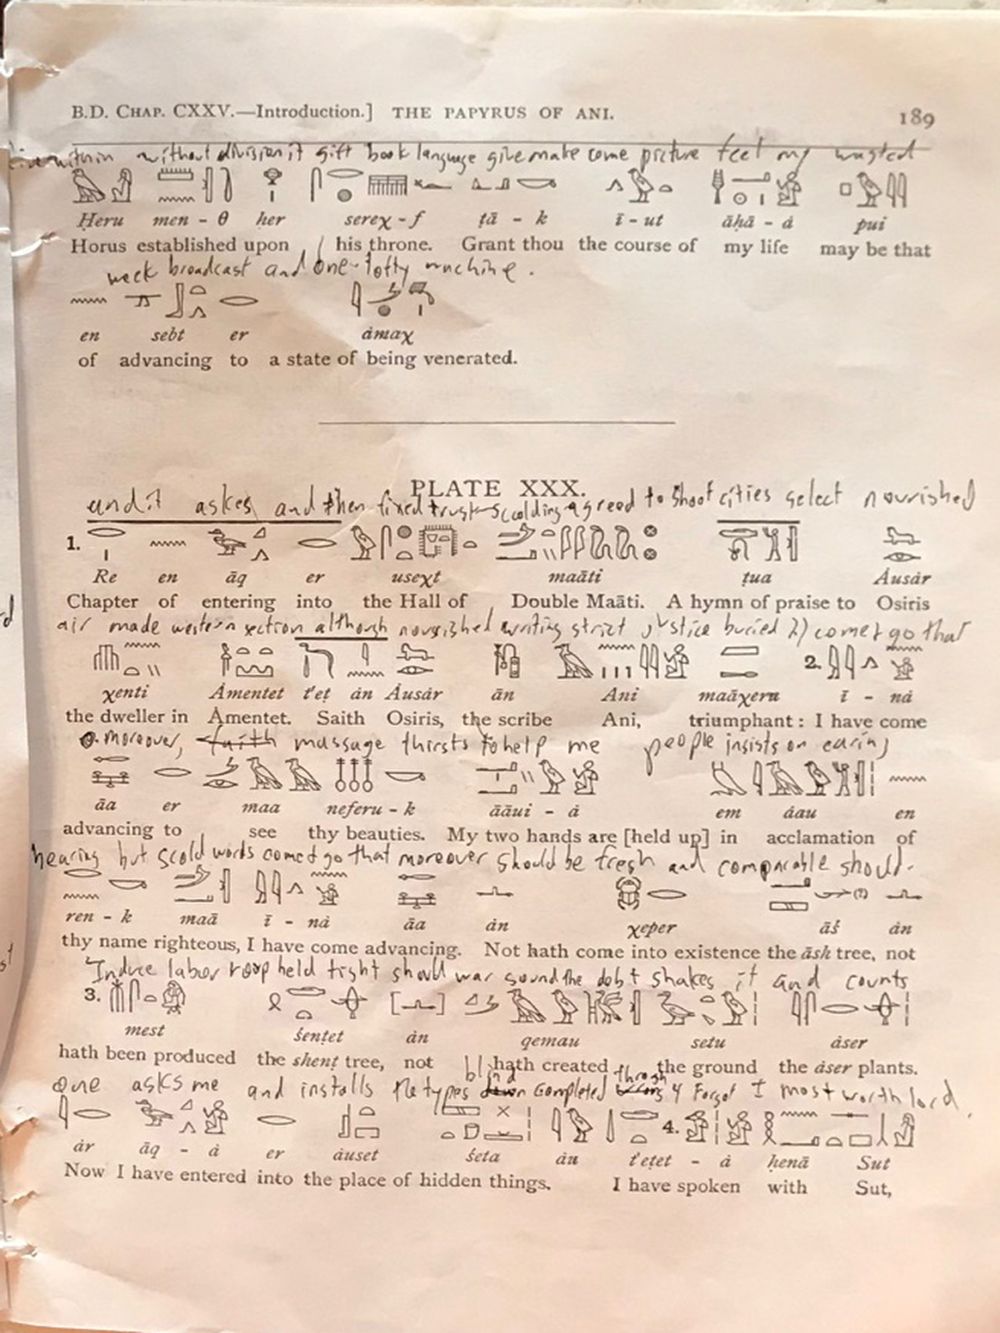 B.D. CHAP. CXXV.—Introduction.] THE PAPYRUS OF ANI. 189
without division it gift book language give make come picture feet my wasted
Ḥeru men - θ ḥer sereχ - f ṭā - k ī - ut āḥā - ȧ pui
Horus established upon his throne. Grant thou the course of my life may be that
week broadcast and one-lofty machine.
en sebt er ȧmaχ
of advancing to a state of being venerated.
PLATE XXX.
and it askes and then fixed trust scolding agreed to shoot cities select nourished
1.
Re en āq er useχt maāti ṭua Ȧusȧr
Chapter of entering into the Hall of Double Maāti. A hymn of praise to Osiris
air made western section although nourished writing strict justice buried 2) comes go that
2.
χenti Ȧmentet t'eṭ ȧn Ȧusȧr ān Ani maāχeru ī - nȧ
the dweller in Ȧmentet. Saith Osiris, the scribe Ani, triumphant: I have come
moreover, massage thirsts to help me people insists on earing
āa er maa neferu - k āāui - ȧ em ȧau en
advancing to see thy beauties. My two hands are [held up] in acclamation of
hearing but scold words comes go that moreover should be fresh and comparable should.
ren - k maā ī - nȧ āa ȧn χeper āś ȧn
thy name righteous, I have come advancing. Not hath come into existence the āsh tree, not
Induce labor roop held tight should war sound the debt shakes it and counts
3.
mest śenṭet ȧn qemau setu ȧser
hath been produced the shenṭ tree, not hath created the ground the ȧser plants.
blind through
One asks me and installs the types completed 4 Forgot I most worth lord.
4.
ȧr āq - ȧ er ȧuset śeta ȧu t'eṭet - ȧ ḥenā Sut
Now I have entered into the place of hidden things. I have spoken with Sut,